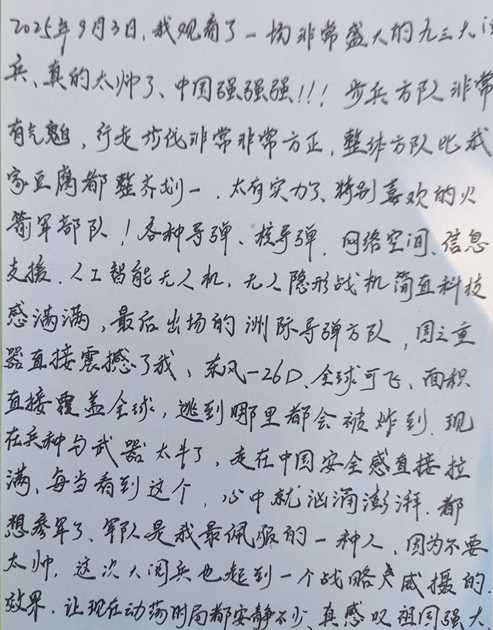 2025年9月3日,我观看了一场非常盛大的九三大阅
兵、真的太帅了、中国强强强!!! 步兵方队非常
有气魄,行走步伐非常非常方正,整体方队比我
家豆腐都整齐划一、太有实力了、特别喜欢的火
箭军部队!各种导弹、核导弹、网络空间、信息
支援、人工智能无人机,无人隐形战机简直科技
感满满,最后出场的洲际导弹方队,国之重
器直接震撼了我、东风-26D、全球可飞、面积
直接覆盖全球,逃到哪里都会被炸到、现
在兵种与武器太牛了,走在中国安全感直接拉
满、每当看到这个,心中就汹涌澎湃、都
想参军了、军队是我最佩服的一种人、因为不要
太帅,这次大阅兵也起到一个战略威摄的
效果、让现在动荡时局都安静不少、真感叹祖国强大、